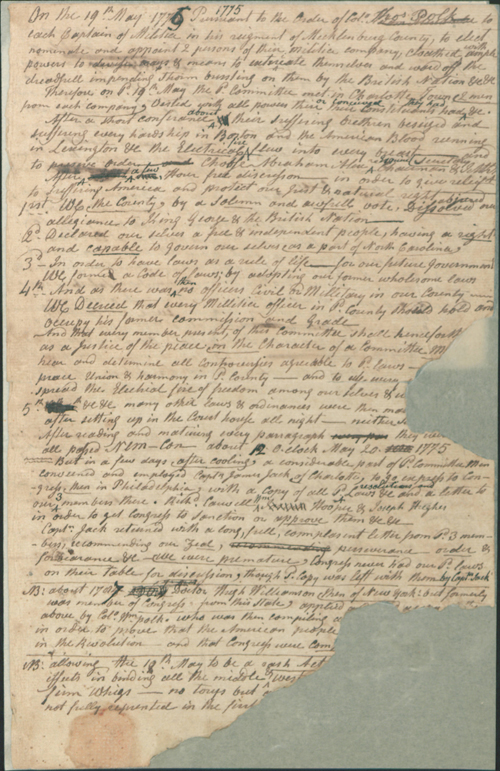 On the 19th May 1776 1775 Pursuant to the Order of Col. Thos. Polk to
each Captain of Militia in his regiment of Mecklenburg County, to elect
nominate and appoint 2 persons of their militia company, cloathed with ample
powers to & means to extricate themselves and ward off the
dreadfull impending storm bursting on them by the British Nation &c &c
Therefore on Sd. 19th May the Sd. Committee met in Charlotte Town 2 men
from each company, Vested with all powers these or conceived they had &c
After a short conference about their suffering brethren besieged and
suffering every hardship in Boston and the American Blood running
in Lexington &c the Electrical fire flew into every
to order Chose Abraham Chairman &
After a few Hour free discussion in order to give relief
to suffering America and protect our Just & natural right
1st We the County, by a Solemn and awfull vote, Dissolved our abjured
allegiance to King George & the British Nation
2d Declared our selves a free & independent people, having a right
and capable to govern our selves as a part of North Carolina
3d In order to have laws as a rule of life — for our future Government
We formed a Code of laws; by adopting our former wholesome laws
4th And as there was then no officers Civil or Military in our County
We Decreed that every Militia officer in Sd. County should hold and
occupy his former commission and Grade
And that every member present, of this Committee shall henceforth
as a Justice of the peace in the Character of a Committee M
hear and determine all Controversies agreeable to Sd. laws
peace Union & harmony in Sd. County — and to use every
spread the Electrical fire of freedom among our selves & u
5th &c &c many other laws & ordinances were then ma
after sitting up in the Court house all night — neither
After reading and maturing every paragraph they were
all passed Nem-Con about 12 o'clock May 20. 1775
But in a few days, after cooling, a considerable part of Sd. Committee Men
convened and employed Captn. James Jack of Charlotte, to go express to Con
gress then in Philadelphia, with a Copy of all Sd. resolutions and Laws &c and a letter to
our 3 members there, Richd. Caswell Wm. Hooper & Joseph Hughes
in order to get Congress to Sanction or approve them &c &c
Captn. Jack returned with a long, full, complasent letter from Sd. 3 mem
bers, recommending our zeal, perseverance order &
forbearance &c — We were premature Congress never had our Sd. laws
on their table for discussion, though Sd. Copy was left with them by Captn. Jack
NB: about 1787 Doctor Hugh Williamson then of New York: but formerly
was member of Congress from this State, applied
above by Col. Wm. Polk who was then compiling a
in order to prove that the American people
in the Revolution — and that Congress were com
NB: allowing the 19th May to be a rash Act
effects in binding all the middle & west
firm Whigs — no torys but
not fully represented in the first